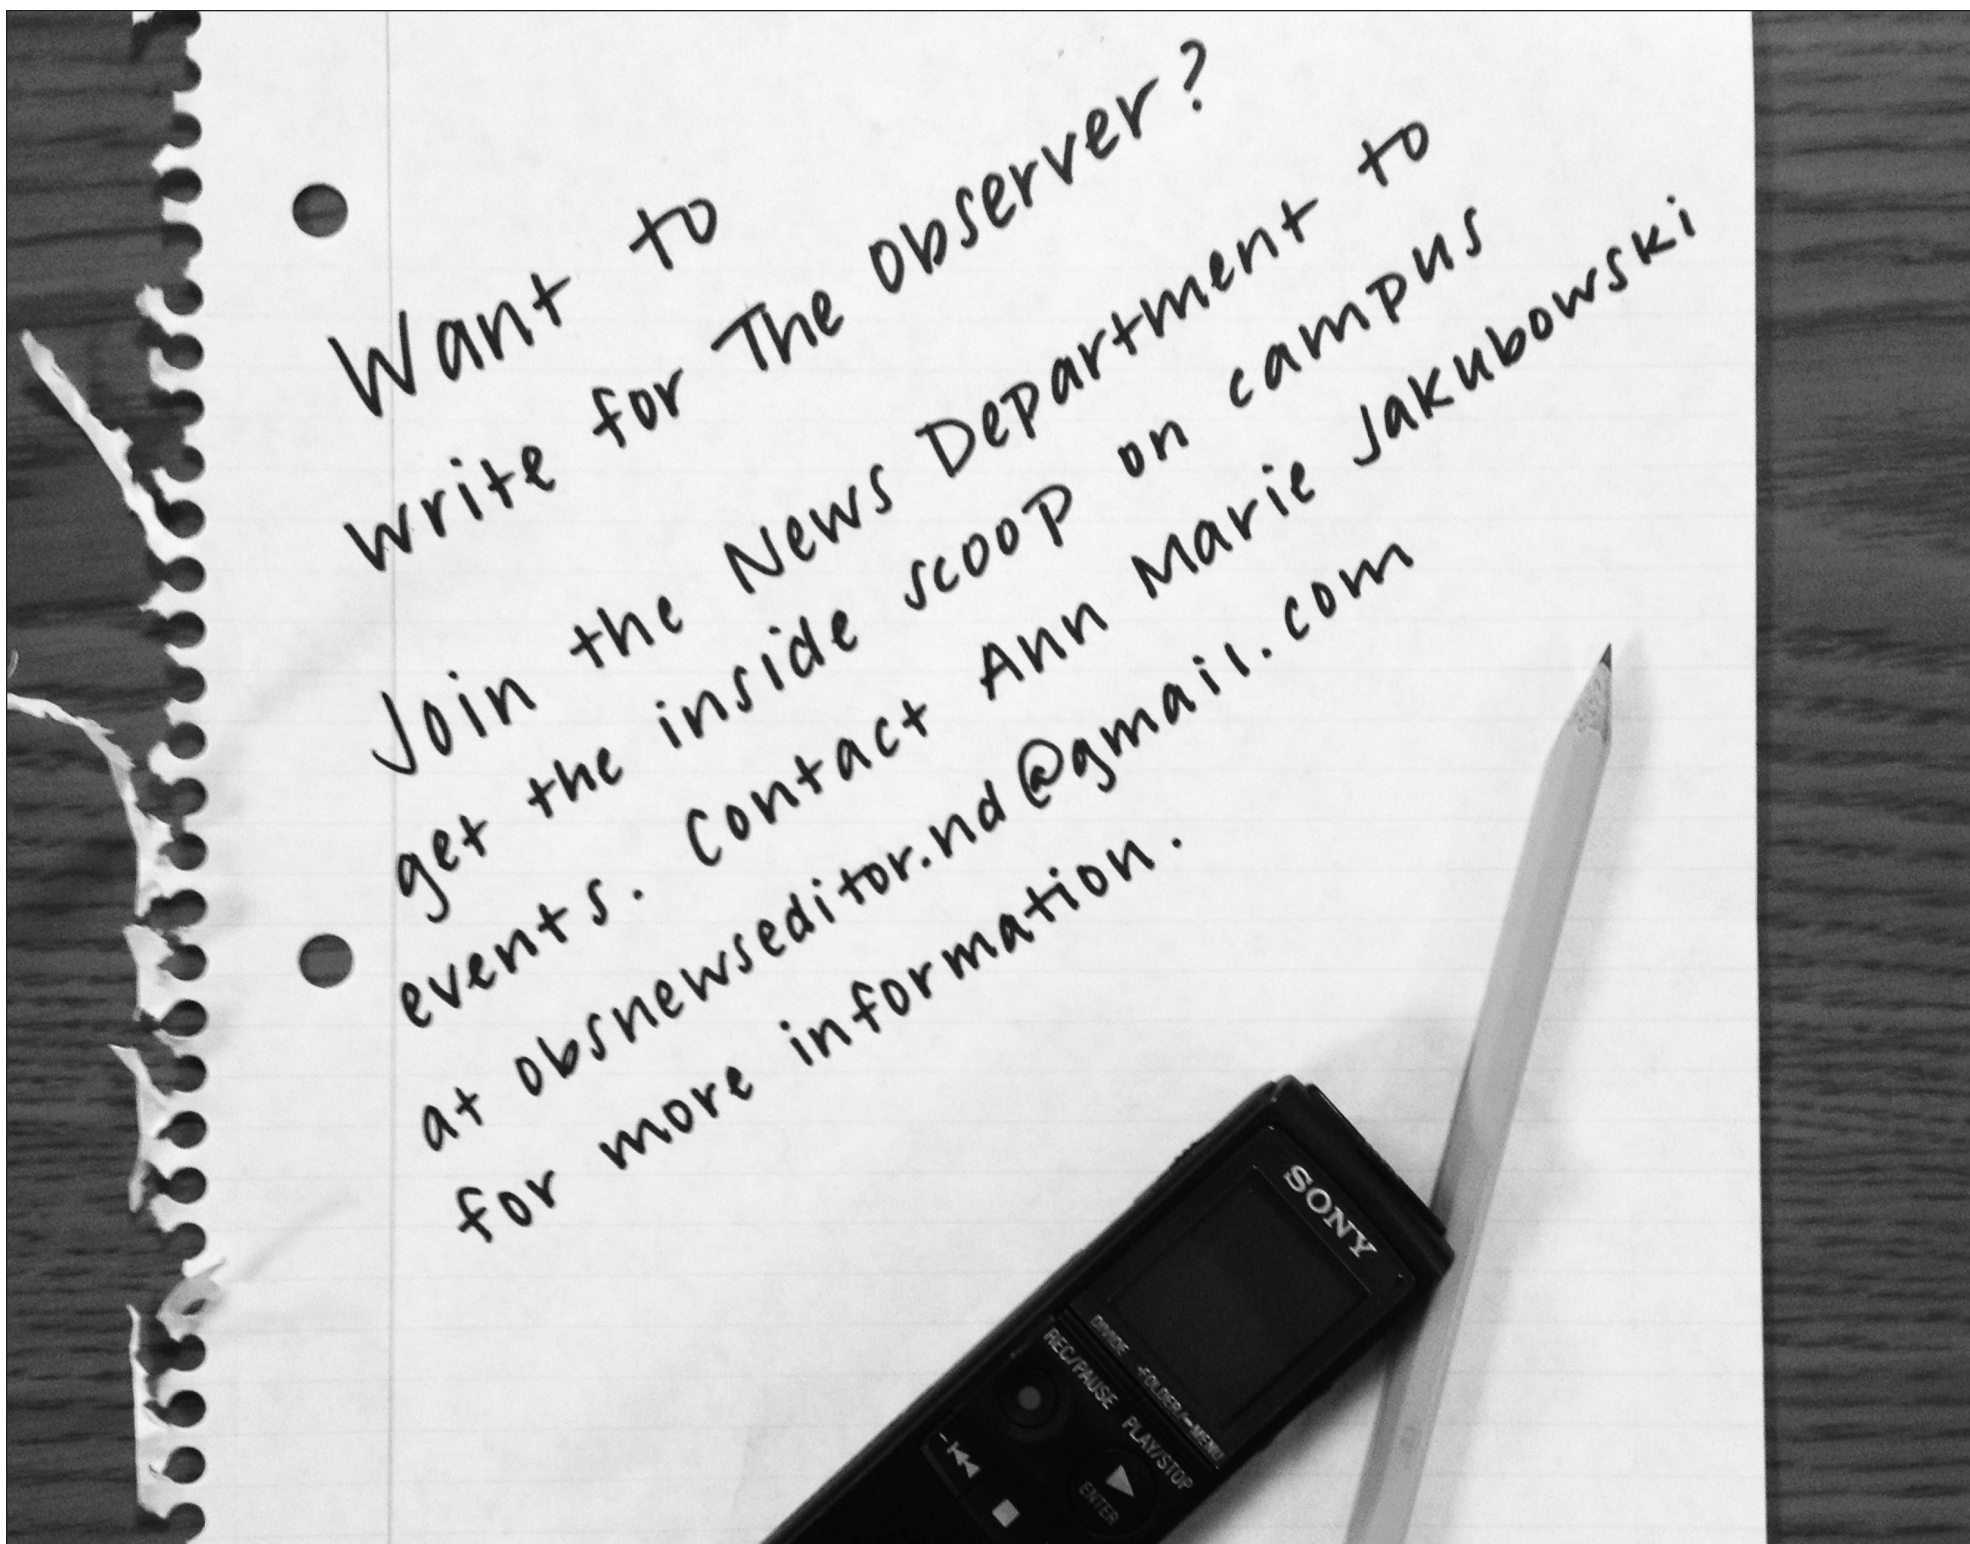 Want to
write for The Observer?
Join the News Department to
get the inside scoop on campus
events. Contact Ann Marie Jakubowski
at obsnewseditor.nd@gmail.com
for more information.
SONY
DIVIDE -FOLDER/-MENU
REC/PAUSE PLAY/STOP
ENTER